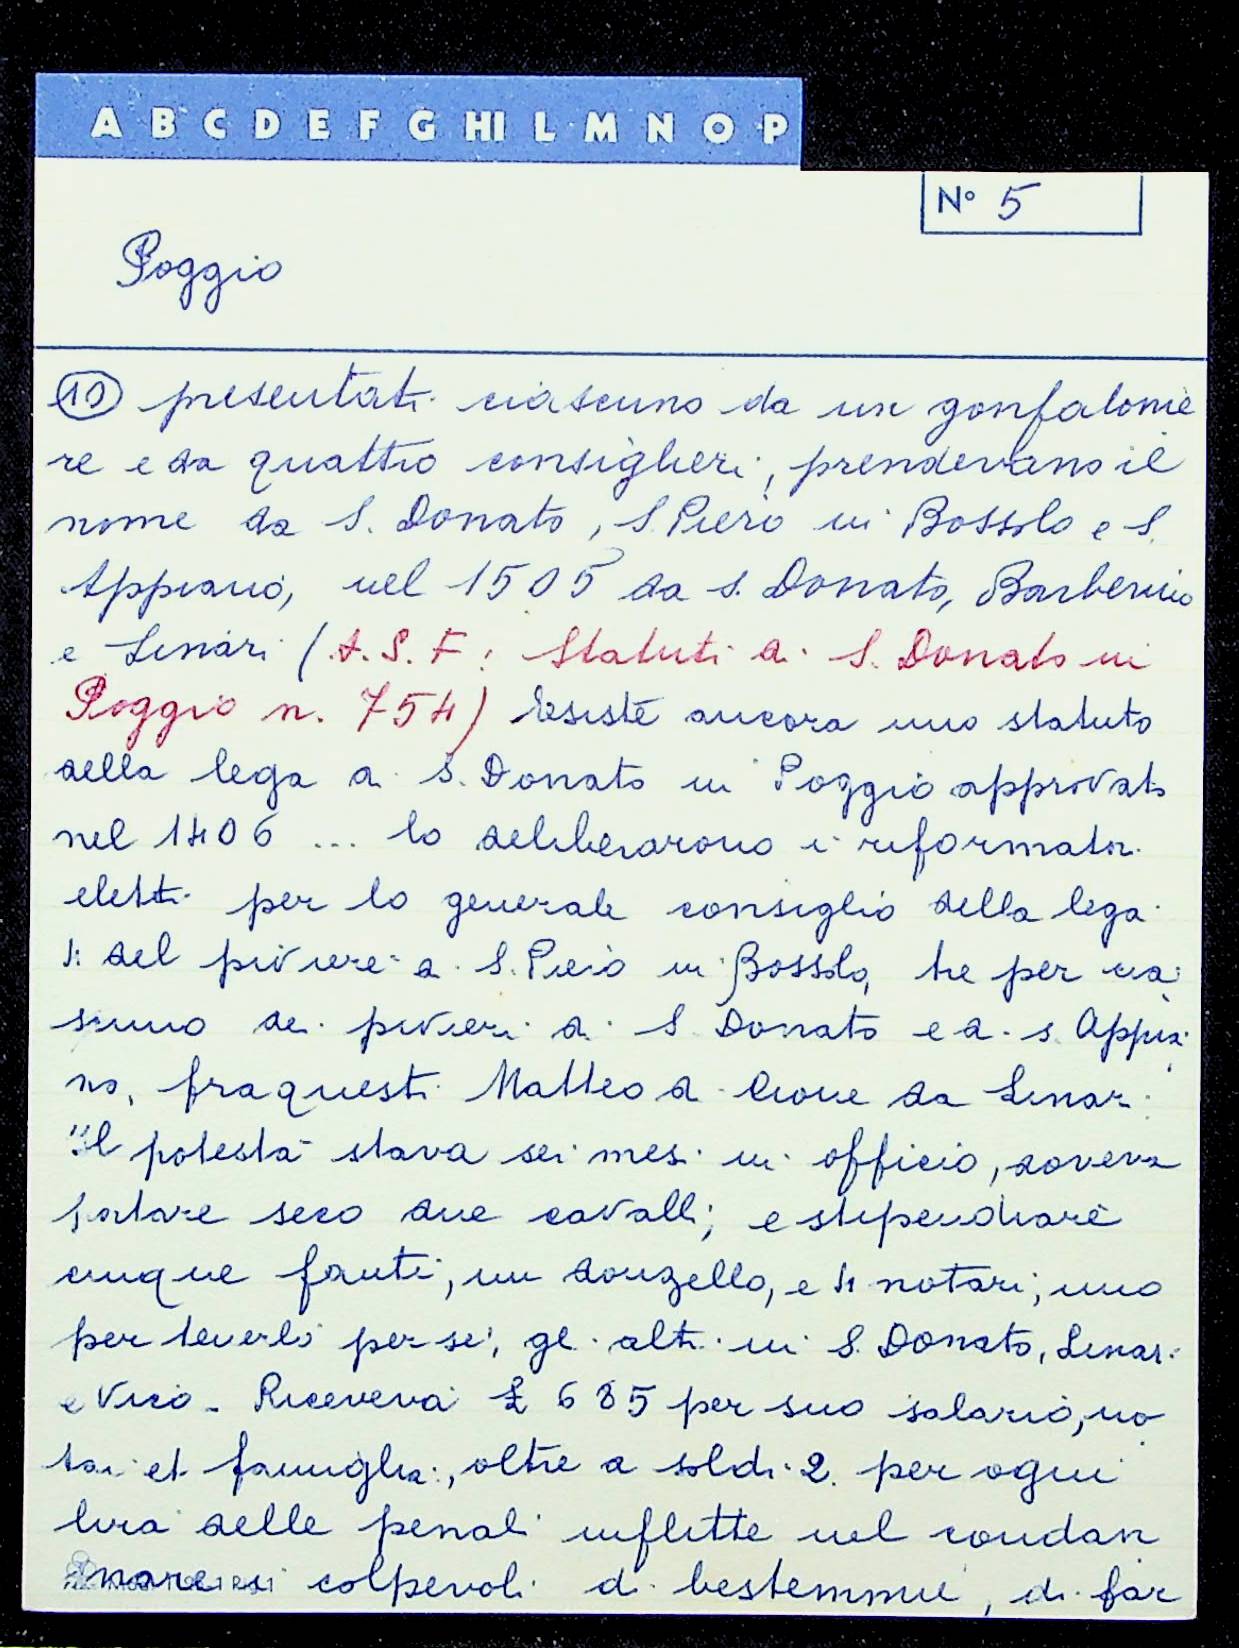 A B C D E F G HI L M N O P
N° 5
Poggio
10 presentati ciascuno da un gonfalonie
re e da quattro consiglieri, prendevano il
nome da S. Donato, S. Piero in Bossolo e S.
Appiano, nel 1505 da S. Donato, Barberino
e Linari (A.S.F: Statuti di S. Donato in
Poggio n. 754) Esiste ancora uno statuto
della lega di S. Donato in Poggio approvato
nel 1406 ... lo deliberarono i riformatori
eletti per lo generale consiglio della lega
4 del piviere di S. Piero in Bossolo, tre per cia
scuno dei pivieri di S Donato e di S. Appia
no, fra questi Matteo di Cione da Linari
"Il potestà stava sei mesi in officio, doveva
portare seco due cavalli; e stipendiare
cinque fanti, un donzello, e 4 notari; uno
per tenerlo per sé, gli altri in S. Donato, Linari
e Vico. Riceveva £ 685 per suo salario, no
tari et famiglia, oltre a soldi 2 per ogni
lira delle penali inflitte nel condan
nare i colpevoli di bestemmie, di far